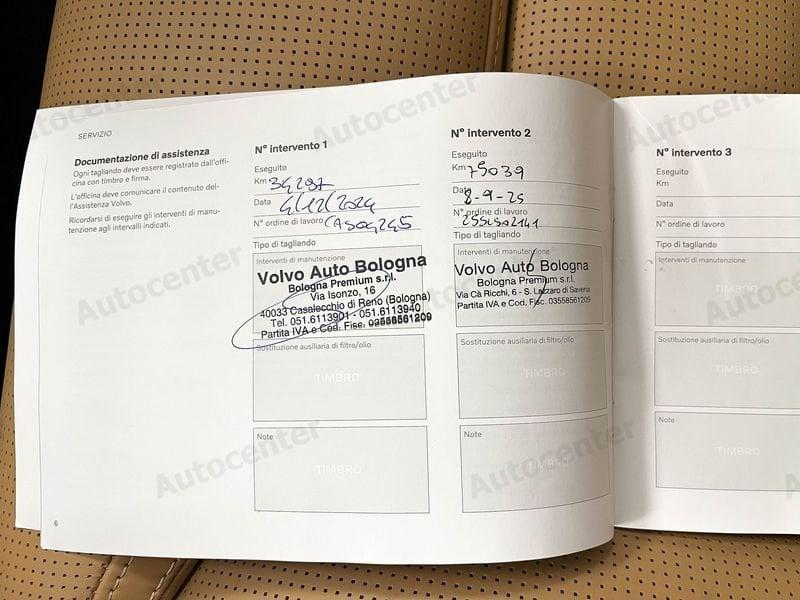 SERVIZIO
Documentazione di assistenza
Ogni tagliando deve essere registrato dall'offi-
cina con timbro e firma.
L'officina deve comunicare il contenuto del-
l'Assistenza Volvo.
Ricordarsi di eseguire gli interventi di manu-
tenzione agli intervalli indicati.
6
N° intervento 1
Eseguito
Km 34297
Data 4/12/2024
N° ordine di lavoro CA504245
Tipo di tagliando
Interventi di manutenzione
Volvo Auto Bologna
Bologna Premium s.r.l.
Via Isonzo, 16
40033 Casalecchio di Reno (Bologna)
Tel. 051.6113901 - 051.6113940
Partita IVA e Cod. Fisc. 03558561209
Sostituzione ausiliaria di filtro/olio
TIMBRO
Note
TIMBRO
N° intervento 2
Eseguito
Km 75039
Data 8-9-25
N° ordine di lavoro
Tipo di tagliando
Interventi di manutenzione
Volvo Auto Bologna
Bologna Premium s.r.l.
Via Cà Ricchi, 6 - S. Lazzaro di Savena
Partita IVA e Cod. Fisc. 03558561209
Sostituzione ausiliaria di filtro/olio
TIMBRO
Note
TIMBRO
N° intervento 3
Eseguito
Km
Data
N° ordine di lavoro
Tipo di tagliando
Interventi di manutenzione
TIMBRO
Sostituzione ausiliaria di filtro/olio
TIMBRO
Note
TIMBRO
Autocenter
Autocenter
Autocenter
Autocenter
Autocenter
Autocenter
Autocenter
Autocenter